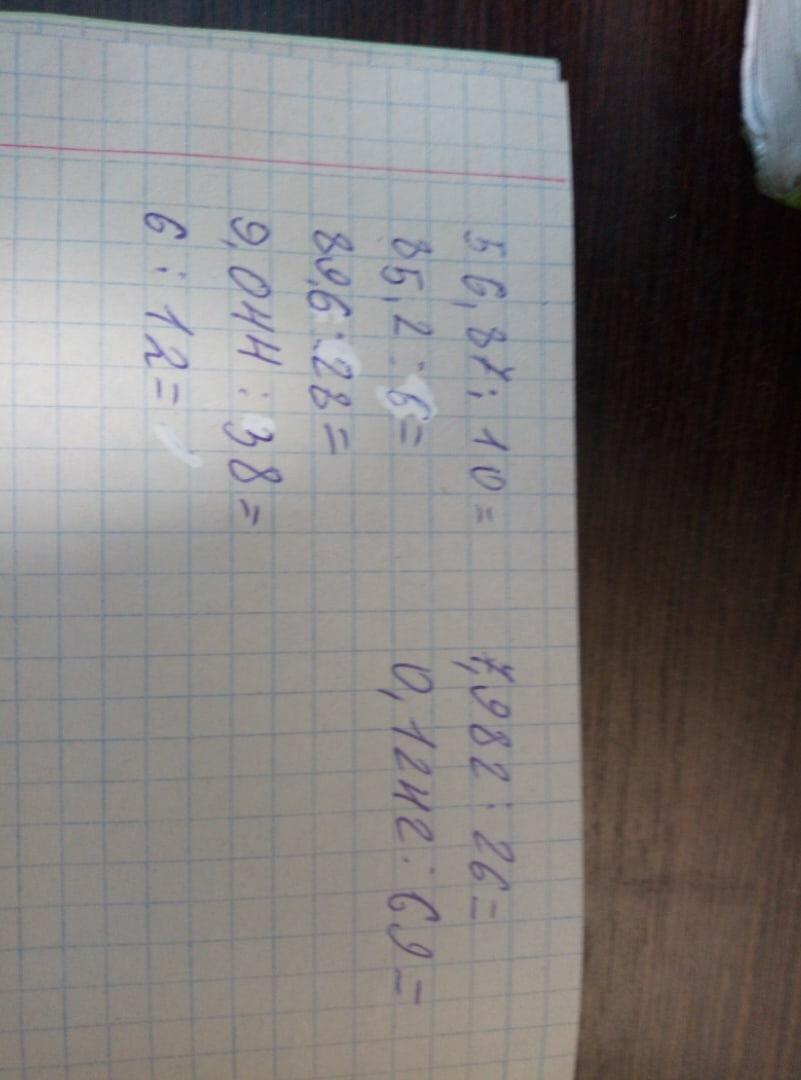 56,87:10=
85,2:6=
89,6:28=
9,044:38=
6:12=
7,982:26=
0,1242:69=